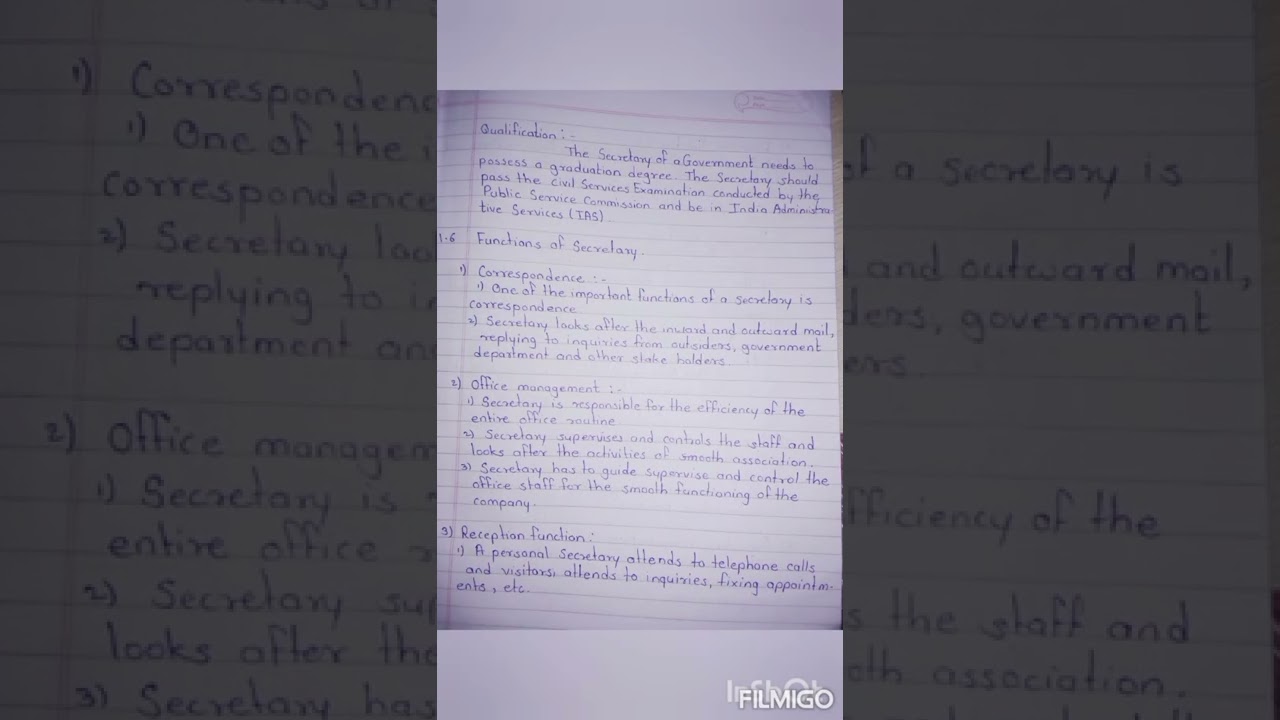 Qualification :-
The Secretary of a Government needs to
possess a graduation degree. The Secretary should
pass the Civil Services Examination conducted by the
Public Service Commission and be in India Administra-
tive Services (IAS)
1.6 Functions of Secretary.
1) Correspondence :-
1) One of the important functions of a secretary is
correspondence
2) Secretary looks after the inward and outward mail,
replying to inquiries from outsiders, government
department and other stake holders.
2) Office management :-
1) Secretary is responsible for the efficiency of the
entire office routine
2) Secretary supervises and controls the staff and
looks after the activities of smooth association.
3) Secretary has to guide supervise and control the
office staff for the smooth functioning of the
company.
3) Reception function :
1) A personal Secretary attends to telephone calls
and visitors, attends to inquiries, fixing appointm-
ents, etc.
FILMIGO